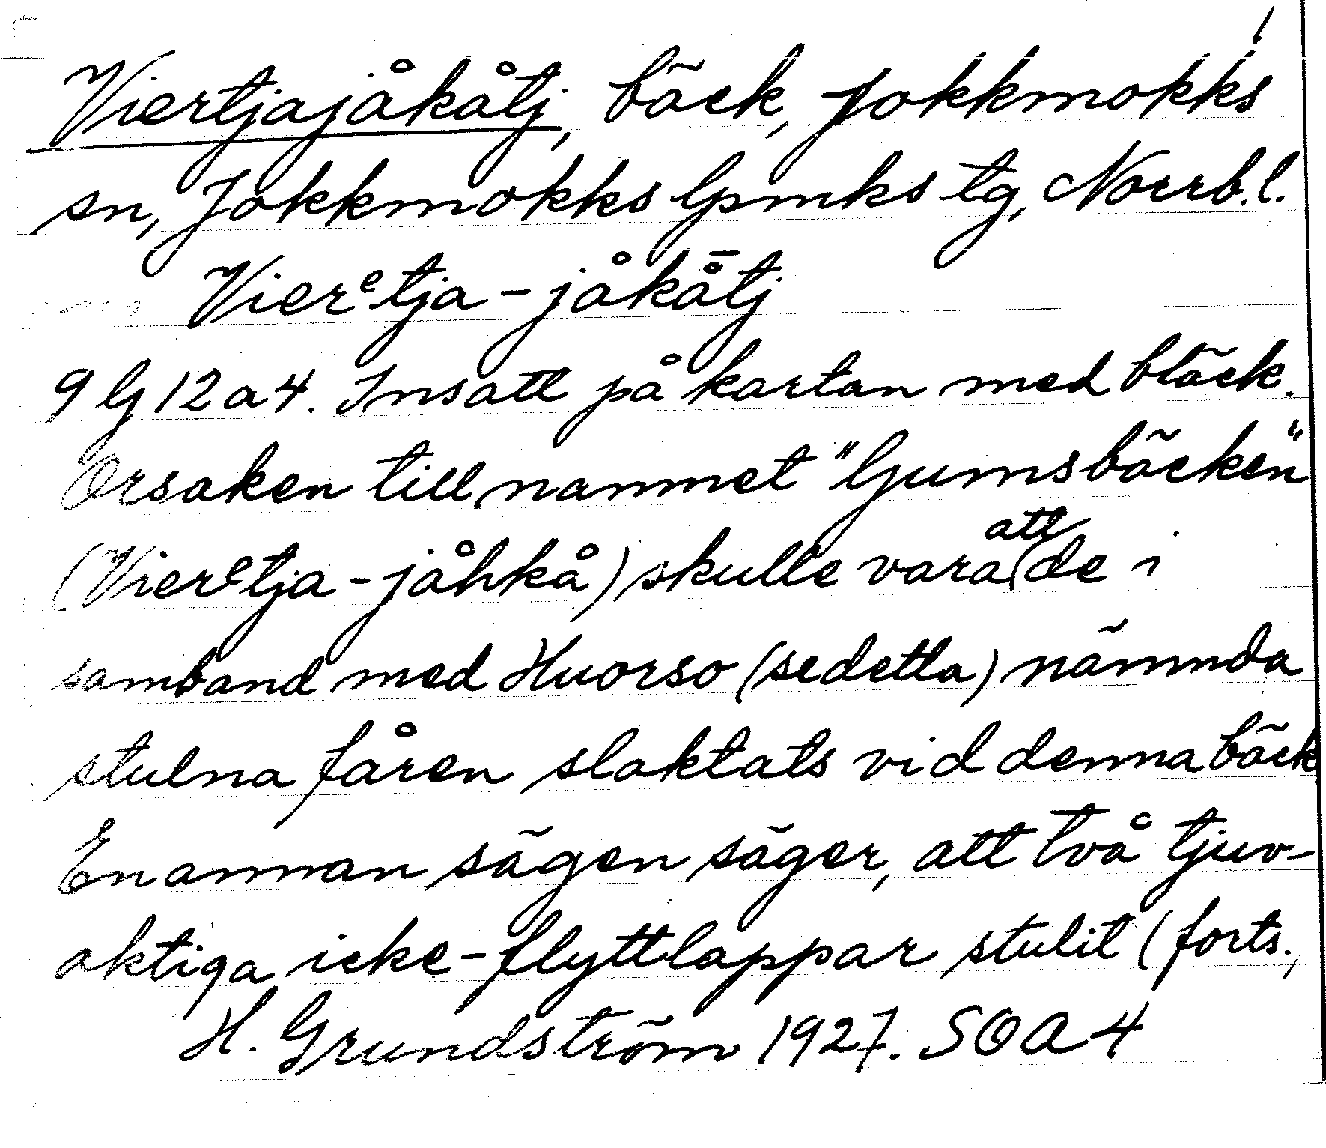 1
Viertjajåkåtj, bäck, Jokkmokks
sn, Jokkmokks lpmks tg, Norrb.l.
Vierᵉtja-jåkå̄tj
9 lj 12 a 4. Insatt på kartan med bläck.
Orsaken till namnet "Gumsbäcken"
(Vierᵉtja-jåhkå) skulle vara att de i
samband med Huorso (sedetta) nämnda
stulna fåren slaktats vid denna bäck
En annan sägen säger, att två tjuv-
aktiga icke-flyttlappar stulit (forts.,
H. Grundström 1927. SOA4